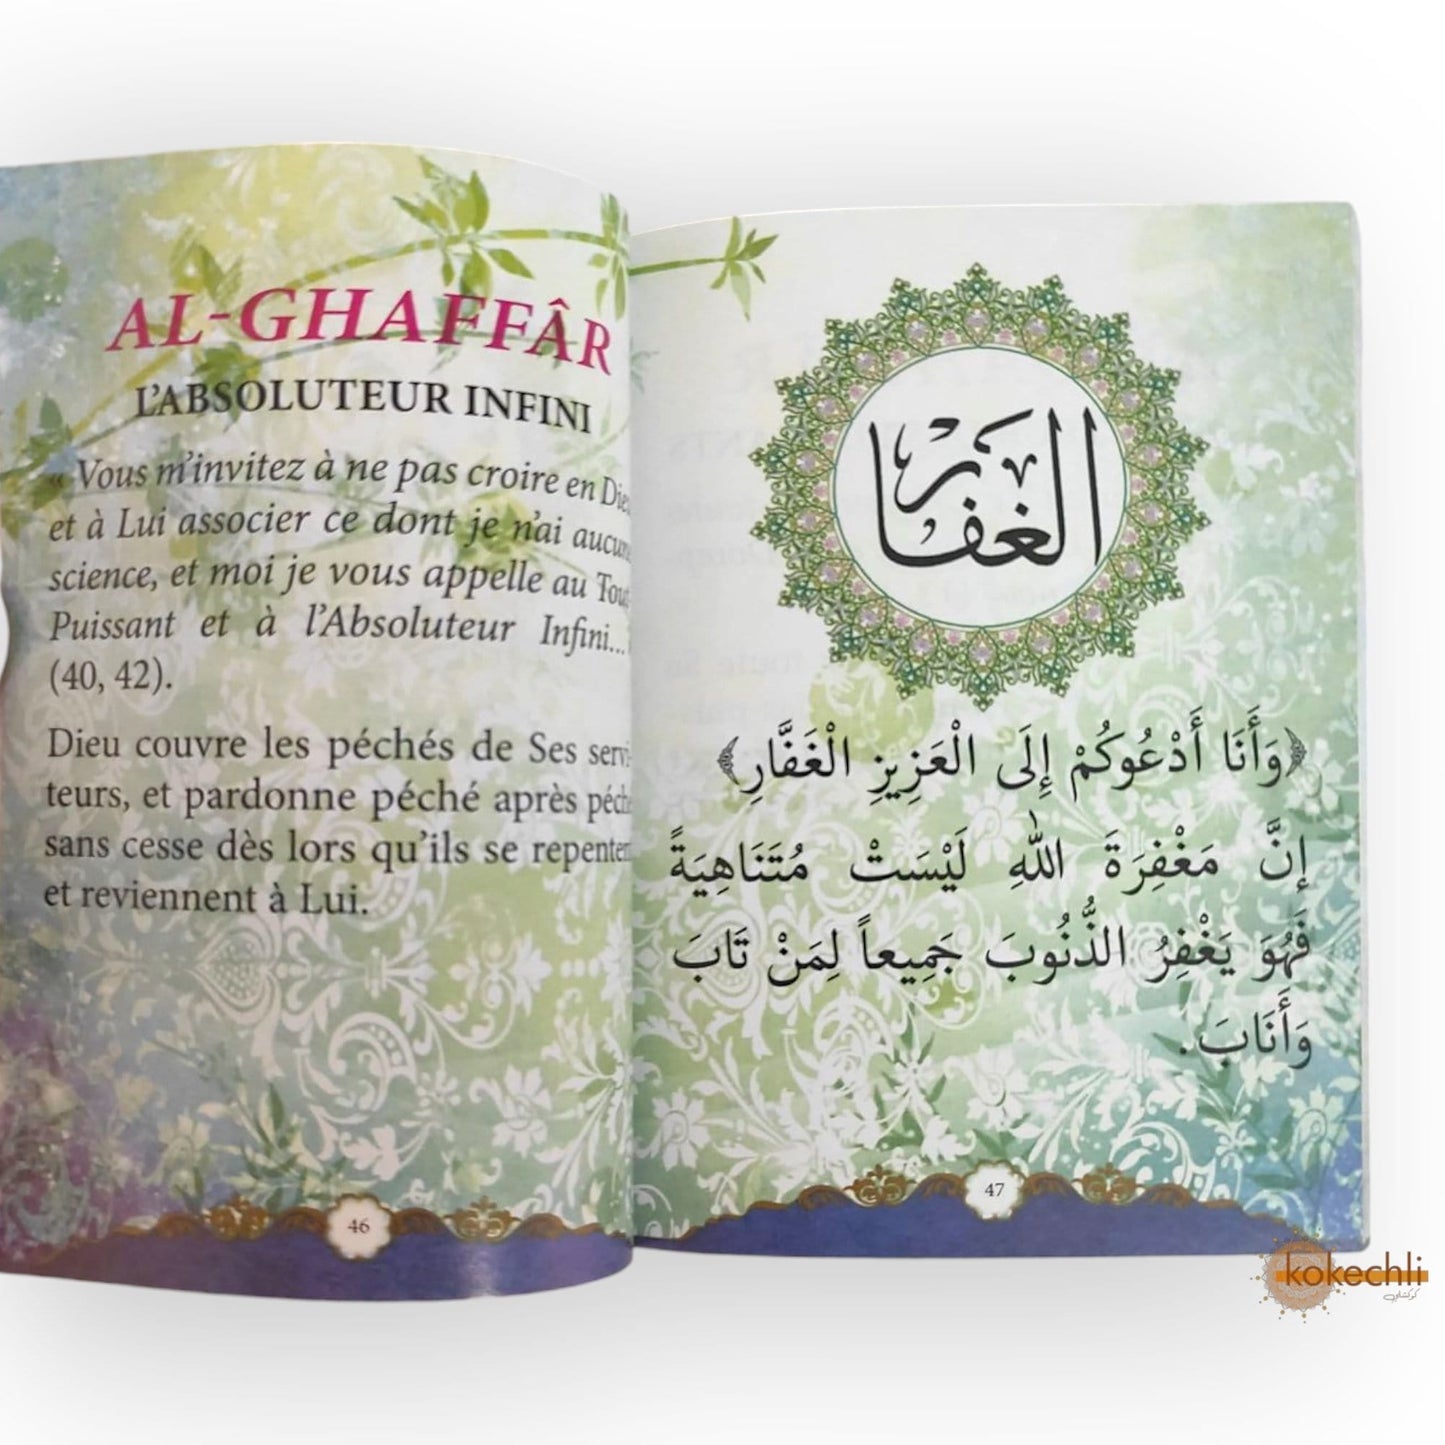 AL-GHAFFÂR
L'ABSOLUTEUR INFINI
« Vous m'invitez à ne pas croire en
et à Lui associer ce dont je n'ai
science, et moi je vous appelle au
Puissant et à l'Absoluteur Infini...
(40, 42).
Dieu couvre les péchés de Ses servi-
teurs, et pardonne péché après
sans cesse dès lors qu'ils se
et reviennent à Lui.
46
الغفار
﴿وَأَنَا أَدْعُوكُمْ إِلَى الْعَزِيزِ الْغَفَّارِ﴾
إِنَّ مَغْفِرَةَ اللهِ لَيْسَتْ مُتَنَاهِيَةً
فَهُوَ يَغْفِرُ الذُّنُوبَ جَمِيعاً لِمَنْ تَابَ
وَأَنَابَ.
47
kokechli